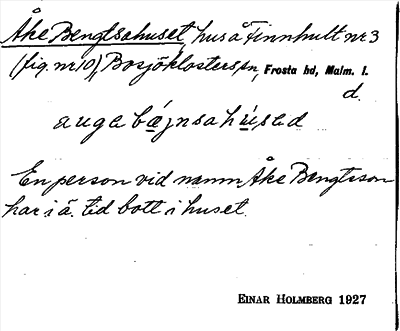 Åke Bengtsahuset, hus å Finnhult nr 3
(fig. nr 10), Bosjöklosters sn, Frosta hd, Malm. l.
d.
auge bájnsahúsed
En person vid namn Åke Bengtsson
har i ä. tid bott i huset.
EINAR HOLMBERG 1927